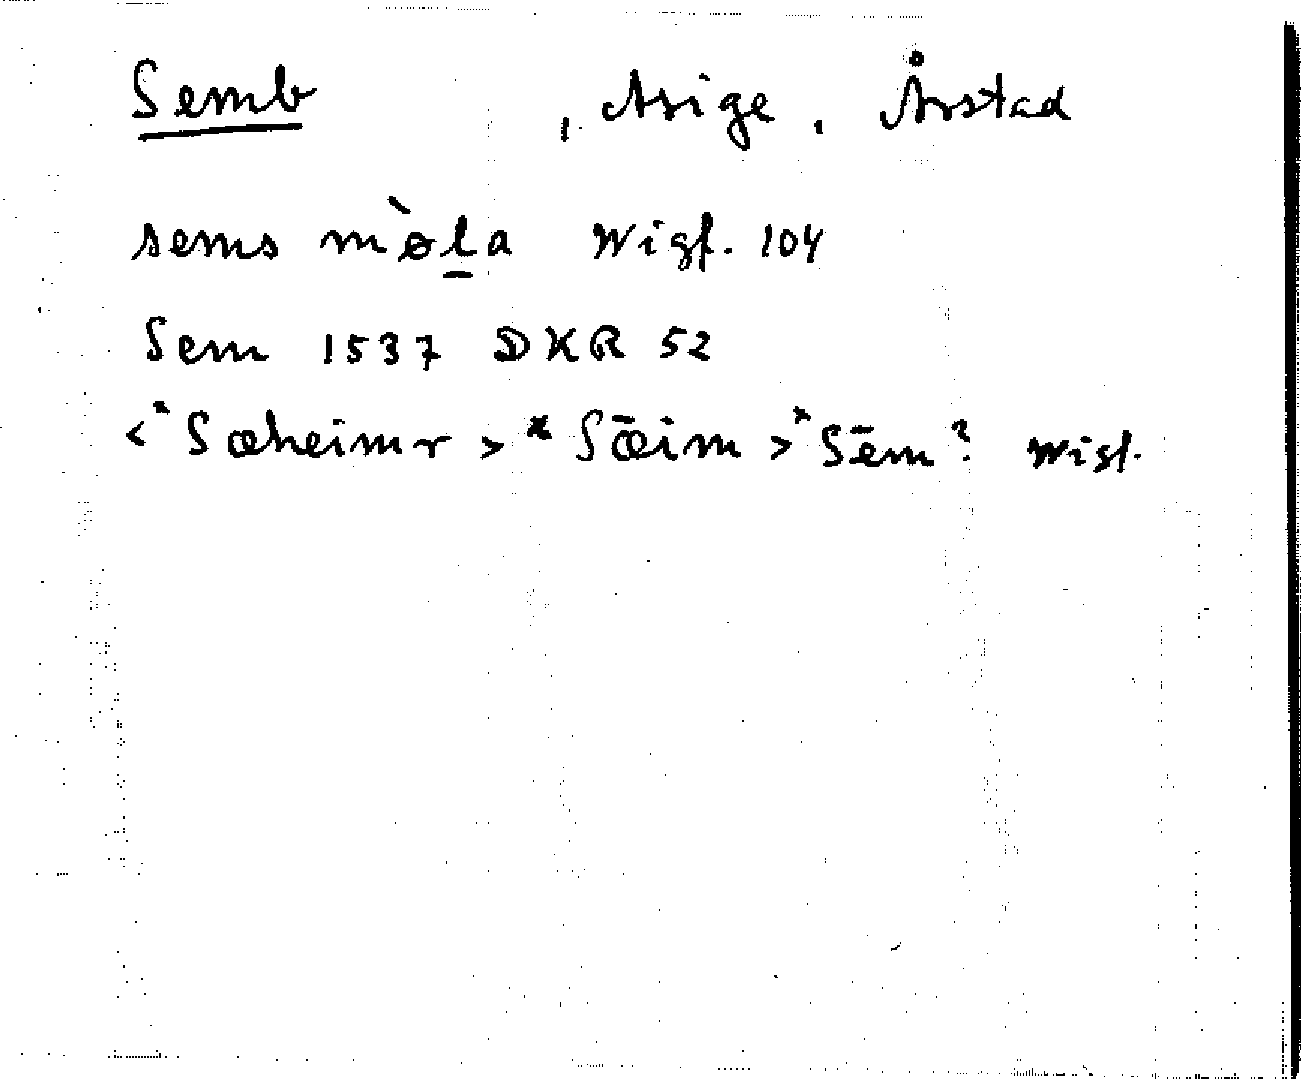 Semb , Asige, Årstad
sems mòl̠a Wigf. 104
Sem 1537 DKR 52
<*Sæheimr > *Sǣim > *Sēm? Wigf.